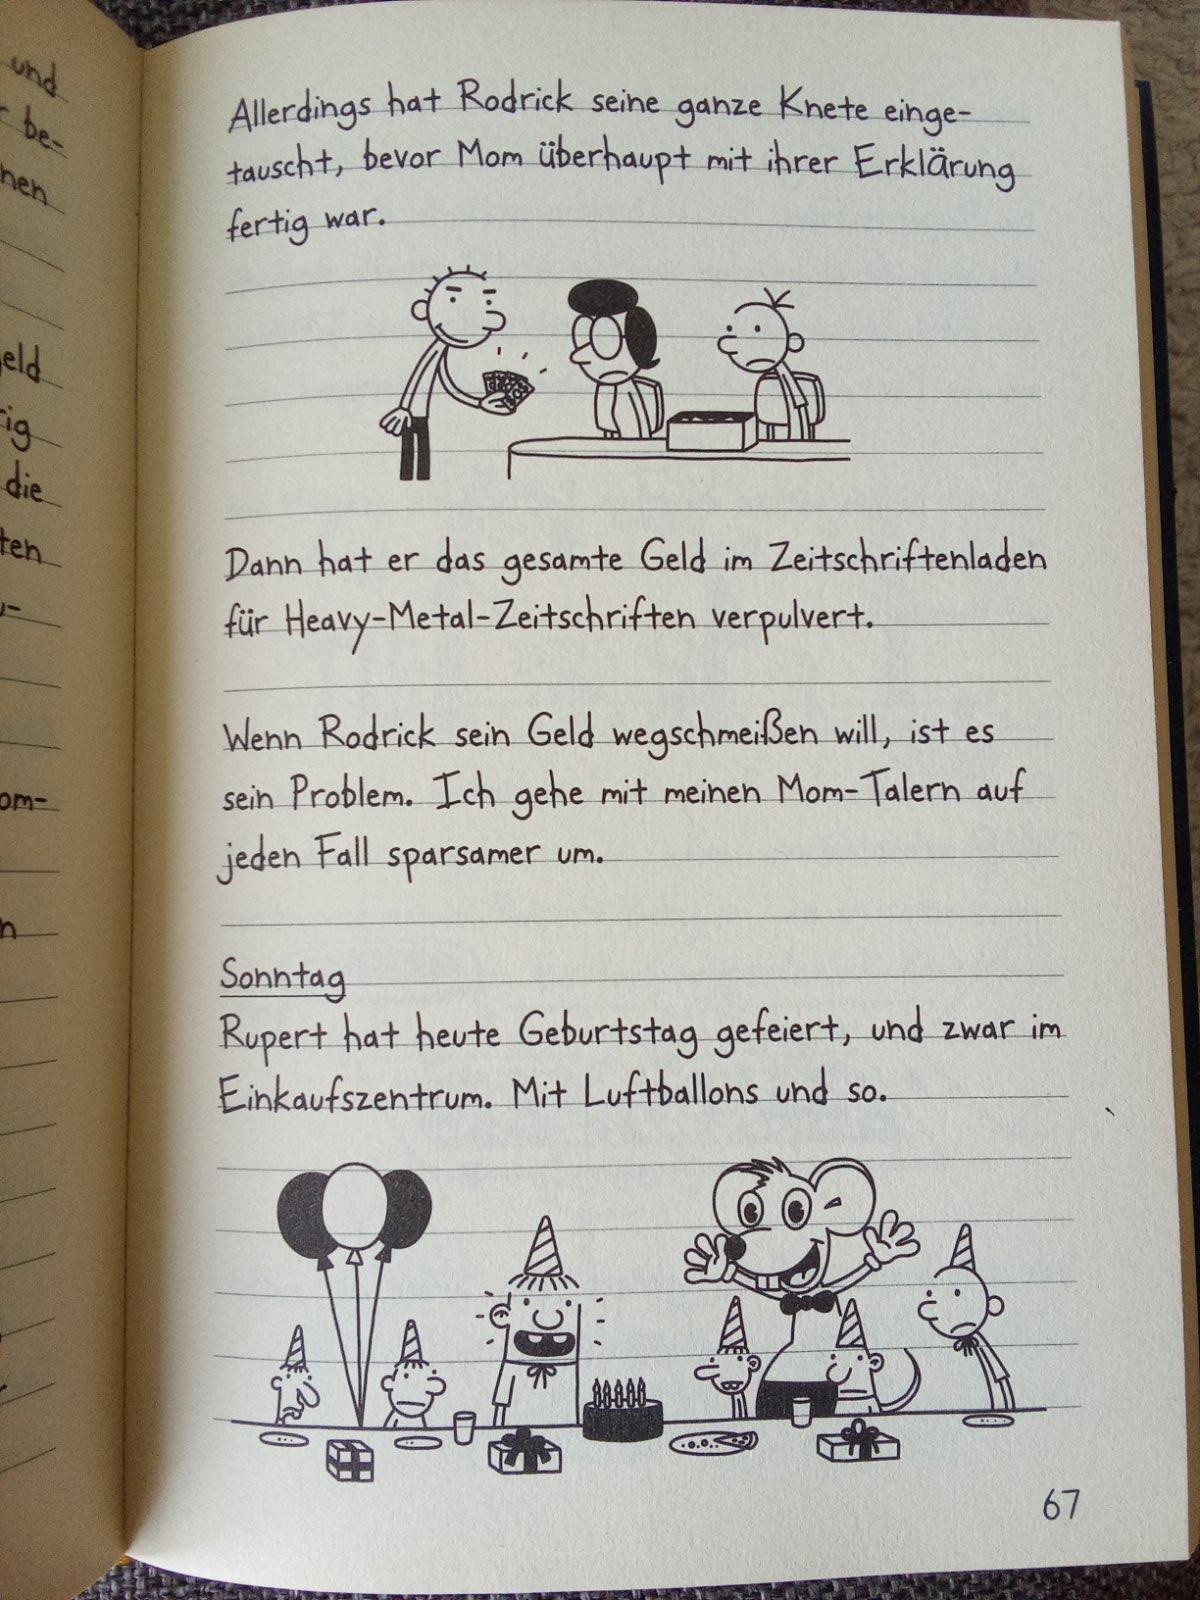 und
be-
nen
eld
rig
die
ten
om-
n
Allerdings hat Rodrick seine ganze Knete einge-
tauscht, bevor Mom überhaupt mit ihrer Erklärung
fertig war.
Dann hat er das gesamte Geld im Zeitschriftenladen
für Heavy-Metal-Zeitschriften verpulvert.
Wenn Rodrick sein Geld wegschmeißen will, ist es
sein Problem. Ich gehe mit meinen Mom-Talern auf
jeden Fall sparsamer um.
Sonntag
Rupert hat heute Geburtstag gefeiert, und zwar im
Einkaufszentrum. Mit Luftballons und so.
67